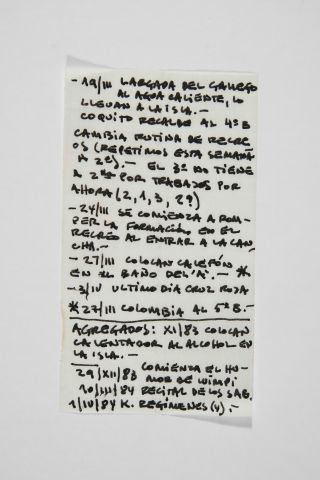 - 19/III LARGADA DEL GALLEGO
AL AGUA CALIENTE, LO
LLEVAN A LA ISLA.-
COQUITO RECALDE AL 4º B
CAMBIA RUTINA DE RECRE
OS (REPETIMOS ESTA SEMANA
A 2º).- EL 3º NO TIENE
A 2º POR TRABAJOS POR
AHORA (2, 1, 3, 2?)
- 24/III SE COMIENZA A ROM-
PER LA FORMACIÓN EN EL
RECREO AL ENTRAR A LA CAN
CHA.-
- 27/III COLOCAN CALEFÓN
EN EL BAÑO DEL "A".- *
- 3/IV ULTIMO DIA CRUZ ROJA
* 27/III COLOMBIA AL 5º B.-
AGREGADOS: XI/83 COLOCAN
CALENTADOR AL ALCOHOL EN
LA ISLA.-
29/XII/83 COMIENZA EL HU-
MOR DE WIMPI
10/III/84 RECITAL DE LOS SAB.
1/IV/84 K. REGIMENES (4).-